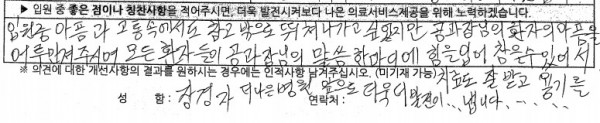 ▶ 입원 중 좋은 점이나 칭찬사항을 적어주시면, 더욱 발전시켜보다 나은 의료서비스제공을 위해 노력하겠습니다.
입원중 아픔과 고통속에서도 참고 밖으로 뛰쳐나가고 싶었지만 공과장님의 환자의 아픔을
어루만져주시며 모든 환자들이 공과장님의 말씀 한마디에 힘을 입어 참을수 있어서
※ 의견에 대한 개선사항의 결과를 원하시는 경우에는 인적사항 남겨주십시오. (미기재 가능) 치료도 잘 받고 용기를
성 함 : 장경자 더 나은 병원 앞으로 더욱더 발전이... 냅니다......
연락처 :